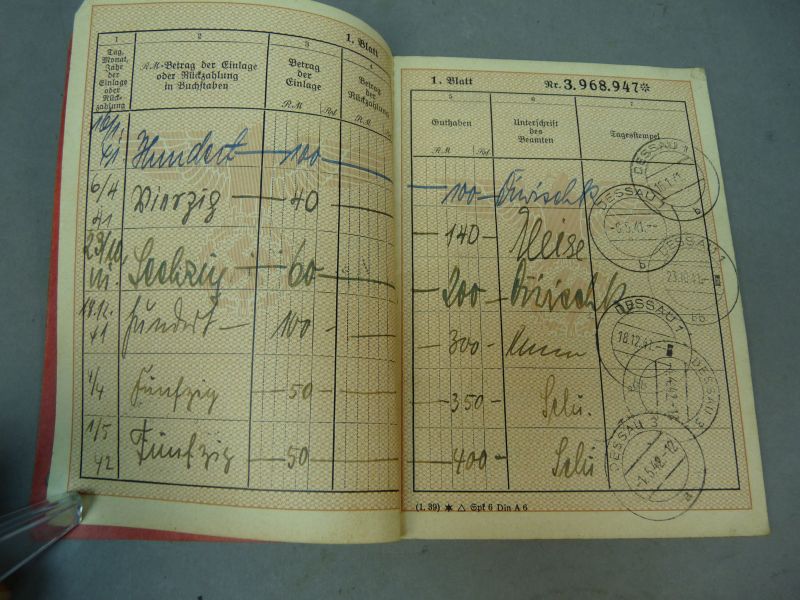 1. Blatt
1 2 3 4
Tag, Monat, Jahr der Einlage oder Rück-zahlung
RM-Betrag der Einlage oder Rückzahlung in Buchstaben
Betrag der Einlage
RM Rpf
Betrag der Rückzahlung
RM
16/1. 41 Hundert — 100 —
6/4 41 Vierzig — 40 —
23/10. Sechzig — 60 —
18.12. 41 Hundert — 100 —
1/4 Fünfzig — 50 —
1/5 42 Fünfzig — 50 —
1. Blatt Nr. 3.968.947*
5 6 7
Guthaben
RM Rpf
Unterschrift des Beamten
Tagesstempel
— 100 —
DESSAU 1
16.1.41
— 140 —
DESSAU 1
-6.5.41.--
b
— 200 —
DESSAU 1
23.10.41.-
— 300 —
DESSAU 1
18.12.41
— 350 — Schu.
DESSAU 3
— 400 — Schu
DESSAU 3
-1.5.42.-12
(1. 39) ✶ △ Spk 6 Din A 6